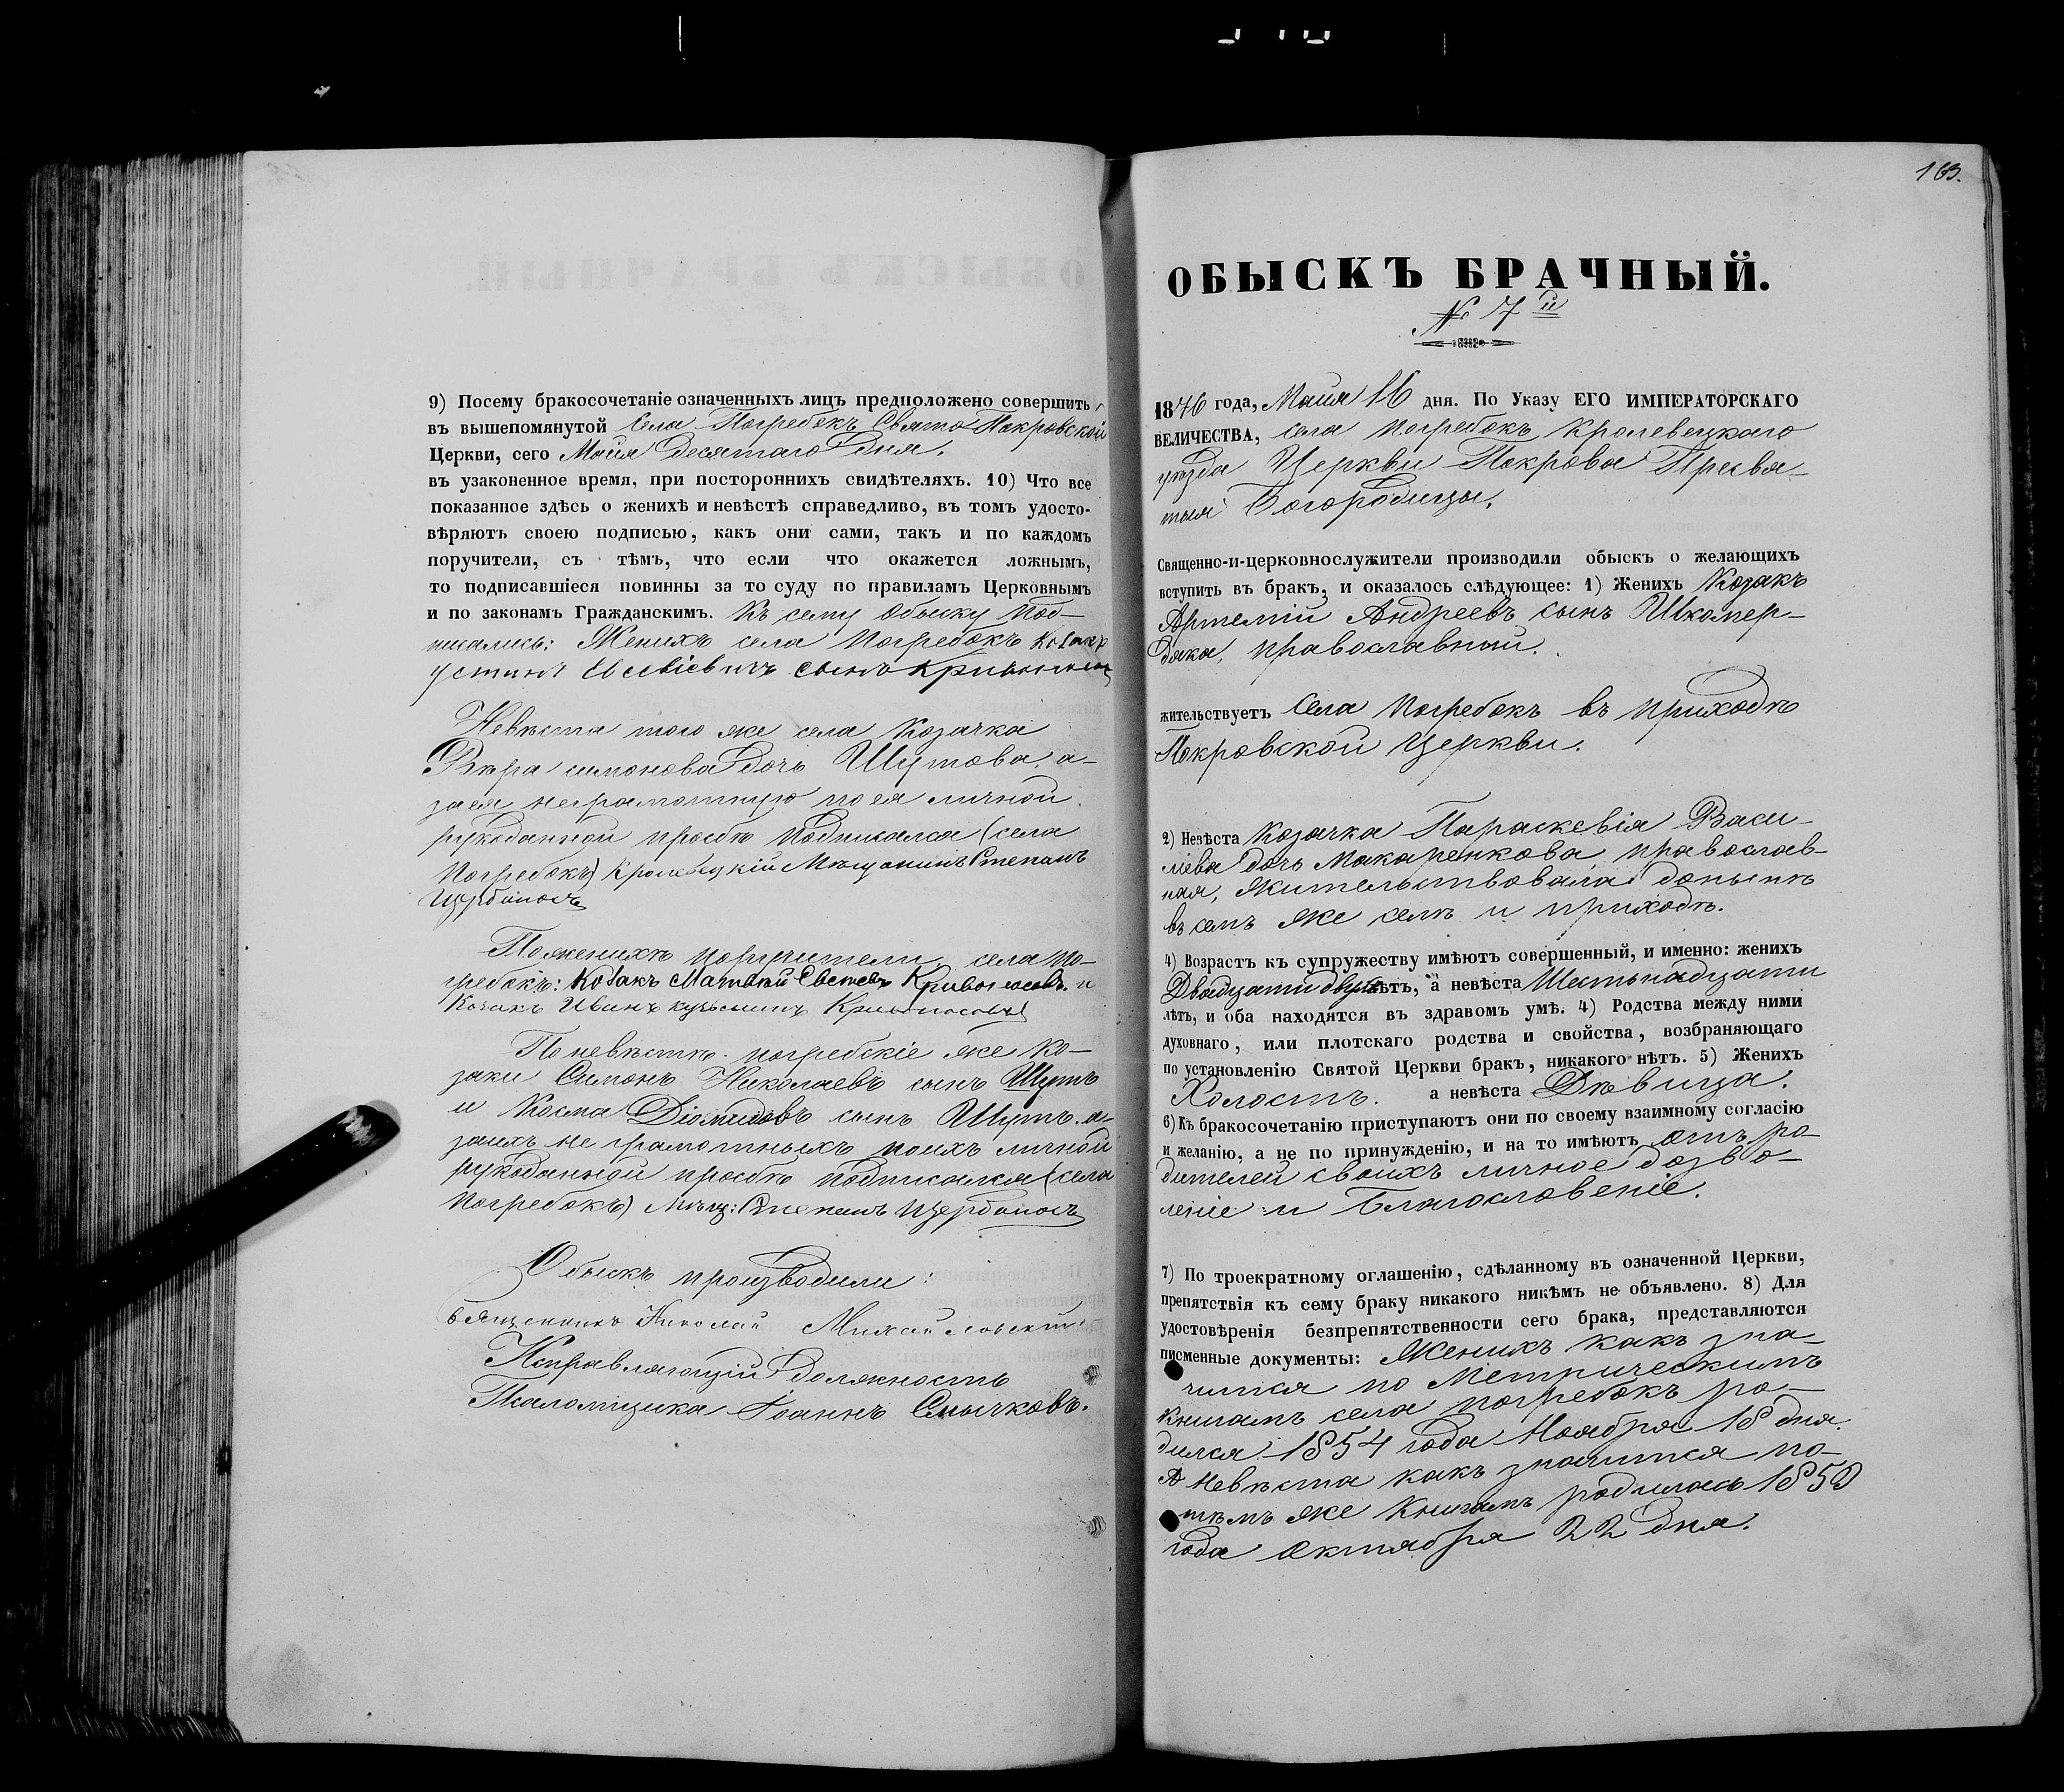 9) Посему бракосочетаніе означенныхъ лицъ предположено совершить
въ вышепомянутой Села Погребокъ Свято-Покровской
Церкви, сего Мaия Десятаго Дня.
въ узаконенное время, при постороннихъ свидѣтеляхъ. 10) Что все
показанное здѣсь о женихѣ и невѣстѣ справедливо, въ томъ удосто-
вѣряютъ своею подписью, какъ они сами, такъ и по каждомъ
поручители, съ тѣмъ, что если что окажется ложнымъ,
то подписавшіеся повинны за то суду по правиламъ Церковнымъ
и по законамъ Гражданскимъ. Къ сему Обыску под-
писались: Женихъ села Погребокъ козакъ
устинъ сынъ
Невѣста того же села Козачка
Вѣра симонова дочь Шутова, а-
за ея неграмотную по ея личной
рукоданной просбѣ подписался (села
Погребокъ) Кролевецкій Мѣщанинъ Степанъ
Щербонось
По женихѣ поручители села По-
гребокъ: козакъ Матвей Кривоносовъ и
Козакъ Иванъ Кривоносовъ
По невѣстѣ погребскіе же ко-
заки Симонъ Николаевъ сынъ Шутъ
и Косма Діомидовъ сынъ Шутъ. а-
за ихъ не грамотныхъ по ихъ личной
рукоданной просбѣ подписался (села
Погребокъ) Мѣщ: Степанъ Щербонось
Обыскъ производили:
Священникъ Николай Михайловскій
Исправляющій должность
Псаломщика Іоаннъ Смычковъ.
163.
ОБЫСКЪ БРАЧНЫЙ.
№ 7й
1876 года, Маия 16 дня. По Указу ЕГО ИМПЕРАТОРСКАГО
ВЕЛИЧЕСТВА, села Погребокъ Кролевецкаго
уѣзда Церкви Покрова Пресвя-
тыя Богородицы.
Священно-и-церковнослужители производили обыскъ о желающихъ
вступить въ бракъ, и оказалось слѣдующее: 1) Женихъ Козакъ
Артемій Андреевъ сынъ Шкомер-
дака, православный.
жительствуетъ Села Погребокъ въ приходѣ
Покровской Церкви.
2) Невѣста Козачка Параскевія Васи-
ліева дочь Макаренкова, православ-
ная, жительствовала донынѣ
въ семъ же селѣ и приходѣ.
4) Возрастъ къ супружеству имѣютъ совершенный, и именно: женихъ
Двадцати двухъ лѣтъ, а невѣста Шестьнадцати
лѣтъ, и оба находятся въ здравомъ умѣ. 4) Родства между ними
духовнаго, или плотскаго родства и свойства, возбраняющаго
по установленію Святой Церкви бракъ, никакого нѣтъ. 5) Женихъ
Холостъ. а невѣста Дѣвица.
6) Къ бракосочетанію приступаютъ они по своему взаимному согласію
и желанію, а не по принужденію, и на то имѣютъ отъ ро-
дителей своихъ личное дозво-
леніе и Благословеніе.
7) По троекратному оглашенію, сдѣланному въ означенной Церкви,
препятствія къ сему браку никакого никѣмъ не объявлено. 8) Для
удостовѣренія безпрепятственности сего брака, представляются
письменные документы: Женихъ какъ зна-
чится по Метрическимъ
книгамъ села Погребокъ ро-
дился 1854 года Ноября 18 дня.
А Невѣста какъ значится по-
тѣмъ же Книгамъ родилась 1859
года Октября 22 дня.